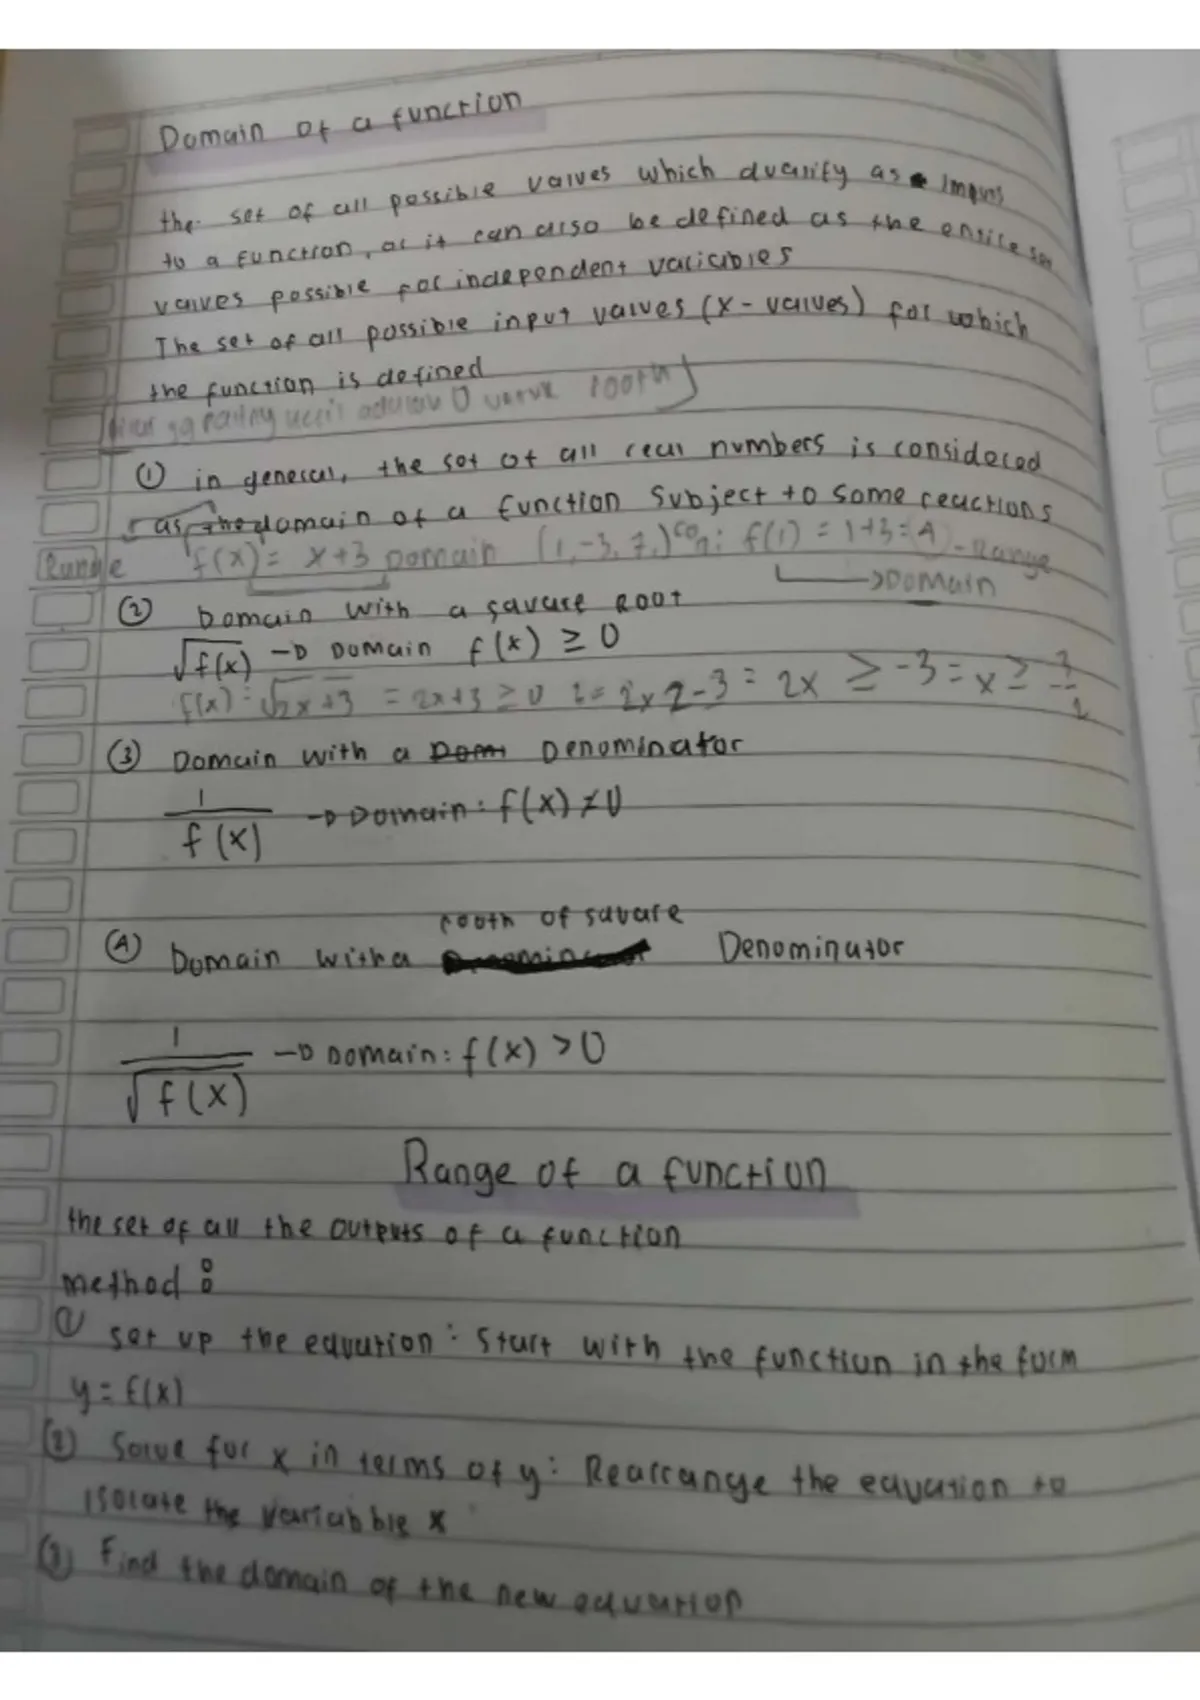 Domain of a function
the set of all possible values which quality as
to a function, or it can also be defined as the entire set
values possible for independent variables
The set of all possible input values (x - values) for which
the function is defined
① in general, the set of all real numbers is considered
as the domain of a function subject to some reactions
Range f(x) = x+3 Domain (1,-3,7,) f(1) = 1+3=4 - Range
→Domain
② Domain with a square root
√f(x) → Domain f(x) ≥ 0
f(x) = √2x+3 = 2x+3 ≥ 0 = 2x ≥ -3 = x ≥ 3/2
③ Domain with a Denominator
1/f(x) → Domain: f(x) ≠ 0
rooth of square
④ Domain with a Denominator
1/√f(x) → Domain: f(x) > 0
Range of a function
the set of all the outputs of a function
method:
① set up the equation: Start with the function in the form
y = f(x)
② Solve for x in terms of y: Rearrange the equation to
isolate the variabble x
③ Find the domain of the new equation